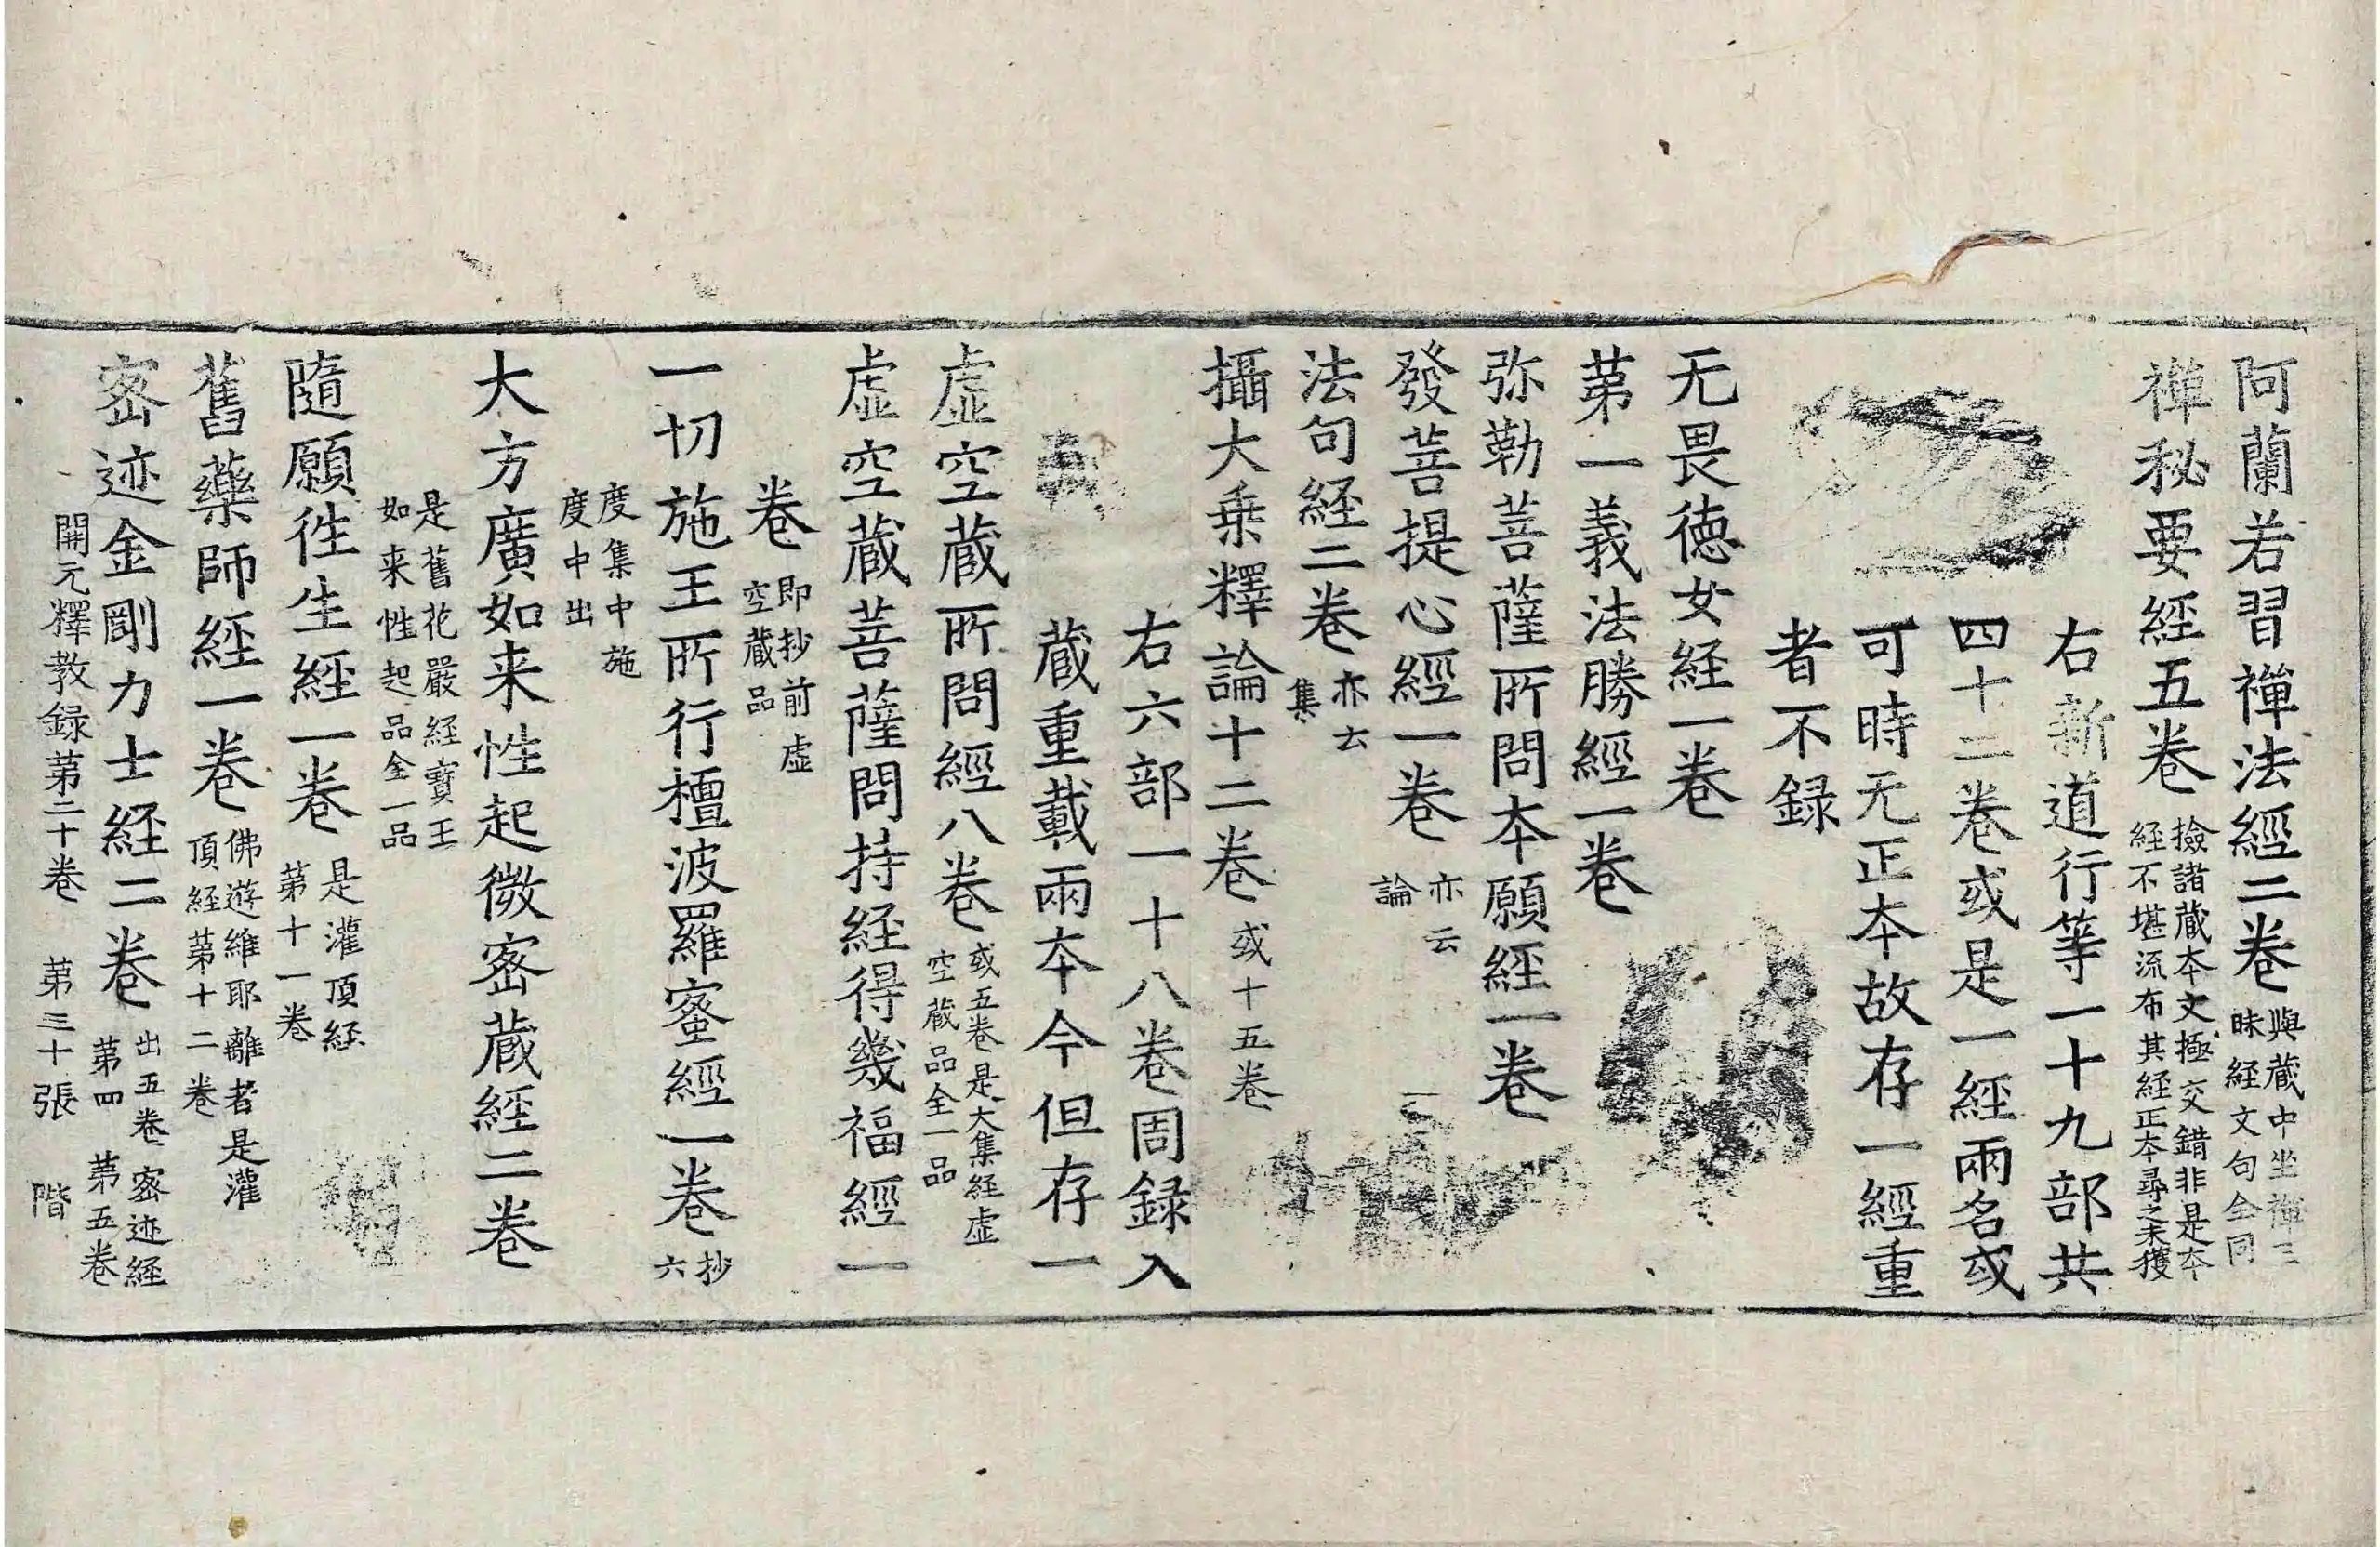 阿蘭若習禪法經二卷 與蔵中坐禪三昧経文句全同
禪秘要経五卷 撿諸蔵夲文極交錯非是夲経不堪流布其経正夲尋之未獲
右新道行等一十九部共
四十二卷或是一經兩名或
可時无正夲故存一經重
者不録
无畏徳女経一卷
苐一義法勝經一卷
弥勒菩薩所問夲願經一卷
發菩提心經一卷 亦云論
法句経二卷 亦云集
攝大乗釋論十二卷 或十五卷
右六部一十八卷周録入
蔵重載兩夲今但存一
虚空蔵所問經八卷 或五卷是大集経虚空蔵品全一品
虚空蔵菩薩問持経得幾福經一
卷 即抄前虚空蔵品
一切施王所行檀波羅蜜經一卷 抄六
度集中施度中出
大方廣如来性起微密蔵經二卷
是舊花嚴経寶王如来性起品全一品
隨願徃生經一卷 是灌頂経苐十一卷
舊藥師經一卷 佛遊維耶離者是灌頂経苐十二卷
密迹金剛力士経二卷 出五卷密迹経苐四苐五卷
開元釋教録苐二十卷 苐三十張 階